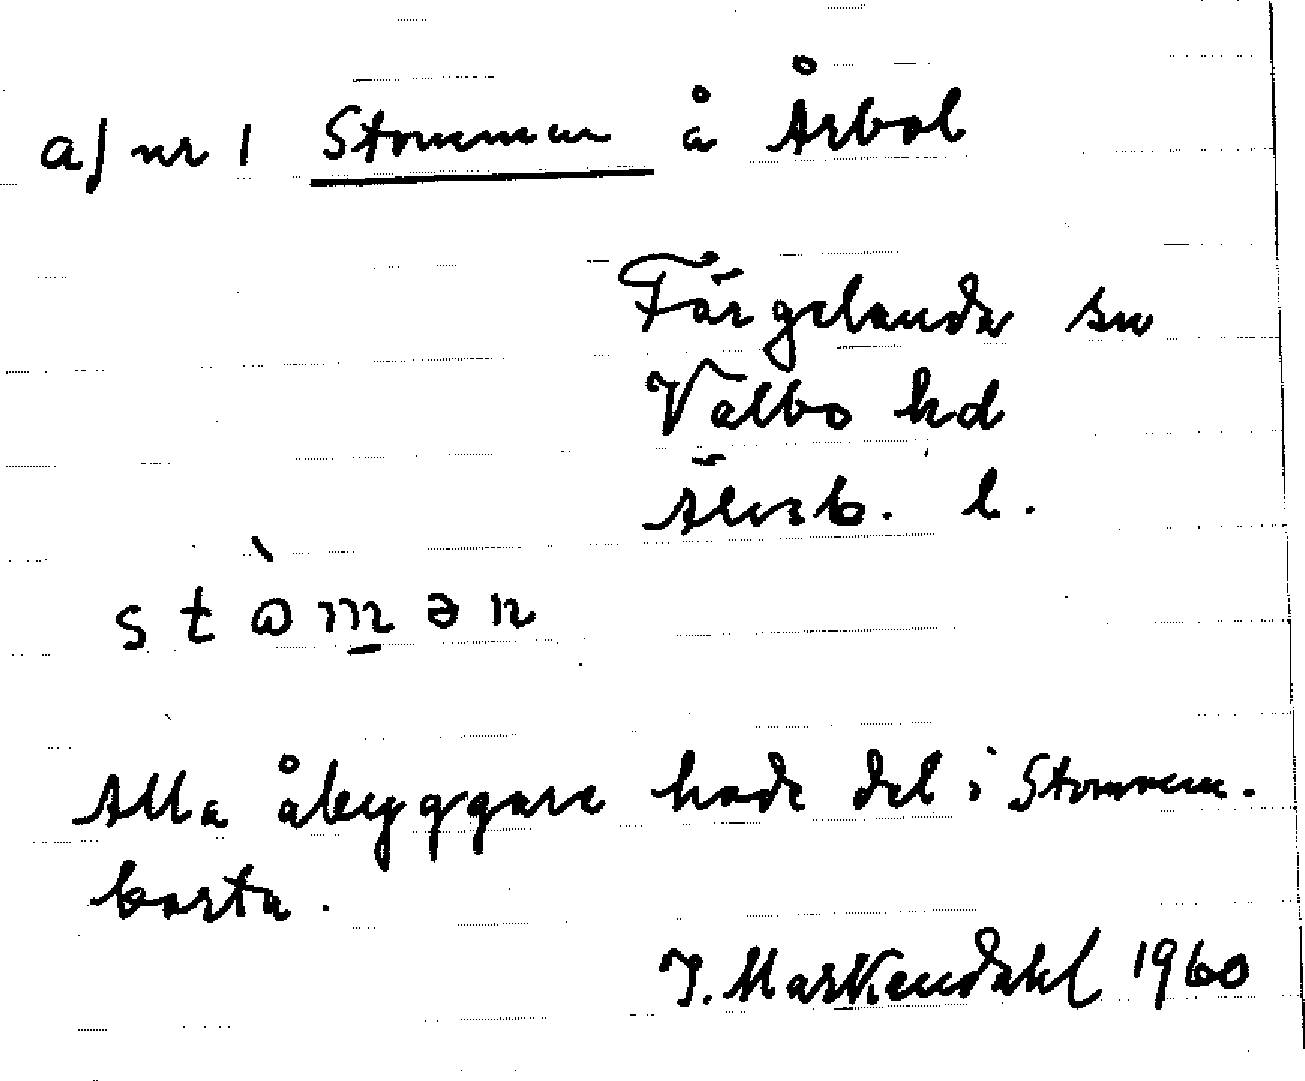 a) nr 1 Stommen å Årbol
Färgelanda sn
Valbo hd
Älvsb. l.
stòmən
Alla åbyggare hade del i Stommen.
borta.
I. Markendahl 1960